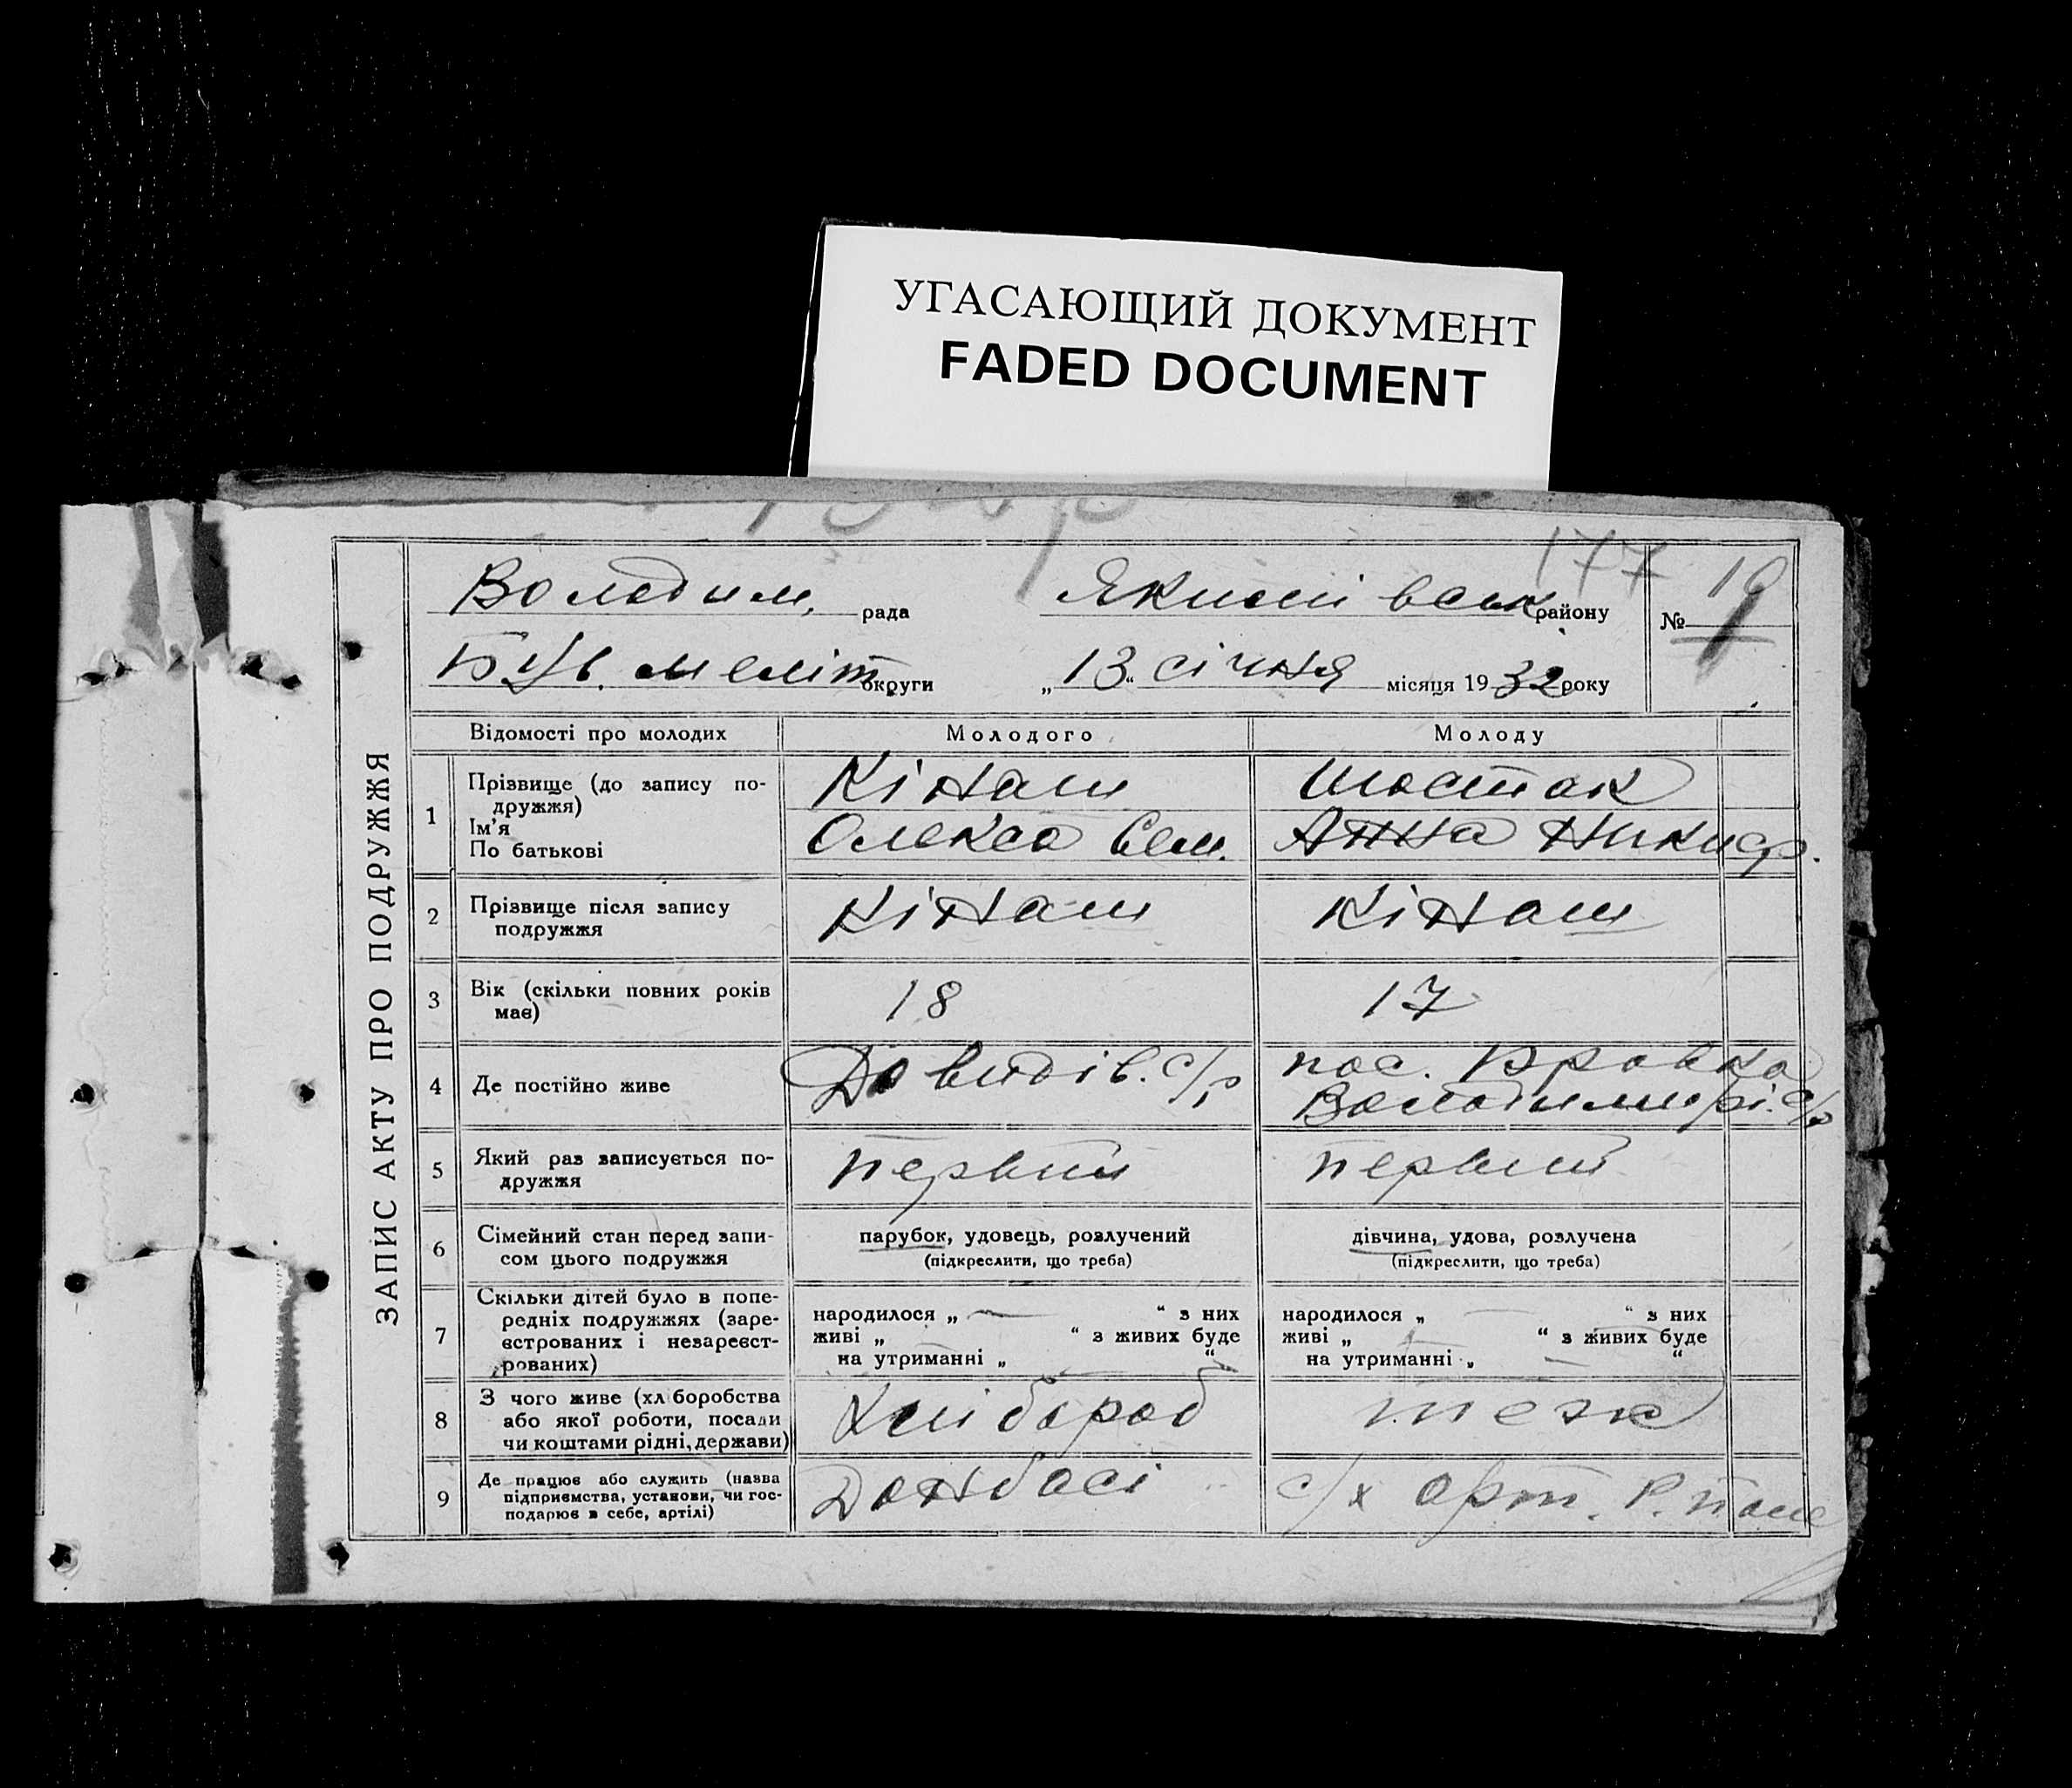 УГАСАЮЩИЙ ДОКУМЕНТ
FADED DOCUMENT
177
Володим. рада Якимівськ району № 1
Був. меліт округи „13“ січня місяця 1932 року
ЗАПИС АКТУ ПРО ПОДРУЖЖЯ
Відомості про молодих Молодого Молоду
1 Прізвище (до запису по-
дружжя) Кінаш Шостак
Ім'я
По батькові Олекса Сем. Анна Никиф.
2 Прізвище після запису
подружжя Кінаш Кінаш
3 Вік (скільки повних років
має) 18 17
4 Де постійно живе Давидів. с/р пос.
Володимирі. с/р
5 Який раз записується по-
дружжя первий первий
6 Сімейний стан перед запи-
сом цього подружжя
парубок, удовець, розлучений
(підкреслити, що треба)
дівчина, удова, розлучена
(підкреслити, що треба)
7 Скільки дітей було в попе-
редніх подружжях (заре-
єстрованих і незареєст-
рованих)
народилося „ — “ з них
живі „ “ з живих буде
на утриманні „ “
народилося „ — “ з них
живі „ “ з живих буде
на утриманні „ — “
8 З чого живе (хліборобства
або якої роботи, посади
чи коштами рідні, держави) хлібороб теж
9 Де працює або служить (назва
підприємства, установи, чи гос-
подарює в себе, артілі) Донбасі с/х арт.